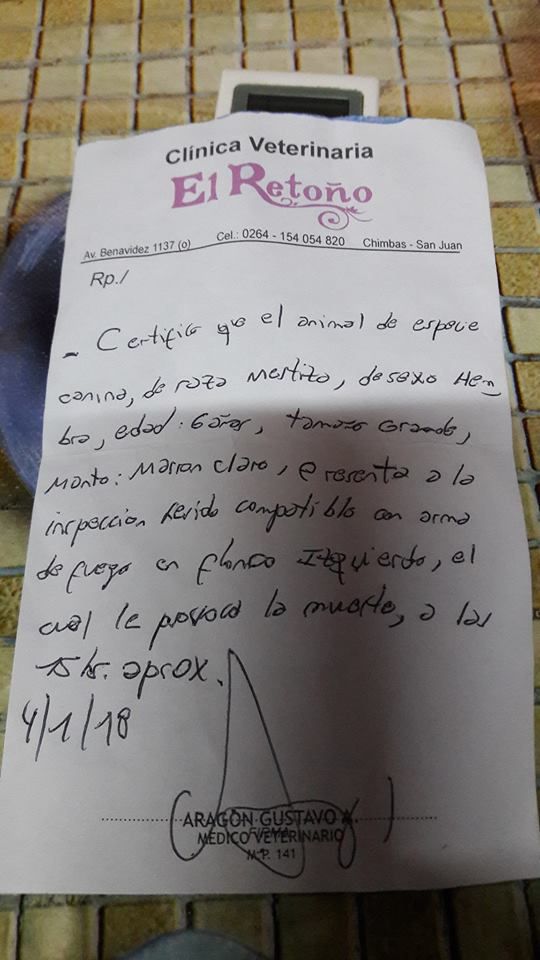 Clínica Veterinaria
El Retoño
Av. Benavidez 1137 (o) Cel.: 0264 - 154 054 820 Chimbas - San Juan
Rp./
- Certifico que el animal de especie
canina, de raza Mestiza, de sexo Hem
bra, edad: 6 años, tamaño Grande,
Manto: Marron claro, presenta a la
inspeccion herida compatible con arma
de fuego en flanco Izquierdo, el
cual le provoca la muerte, a las
15 hr. aprox.
4/1/18
ARAGON GUSTAVO
MEDICO VETERINARIO
FIRMA
M.P. 141